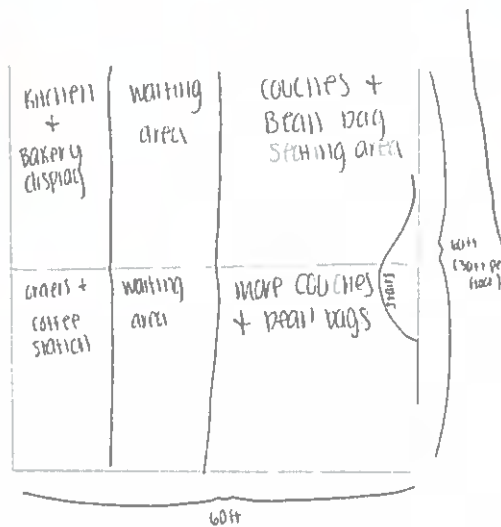 Kitchen
+
Bakery
display
waiting
area
couches +
Bean bag
seating area
orders +
coffee
station
waiting
area
more couches
+ bean bags
stairs
60ft
(30ft per
60ft